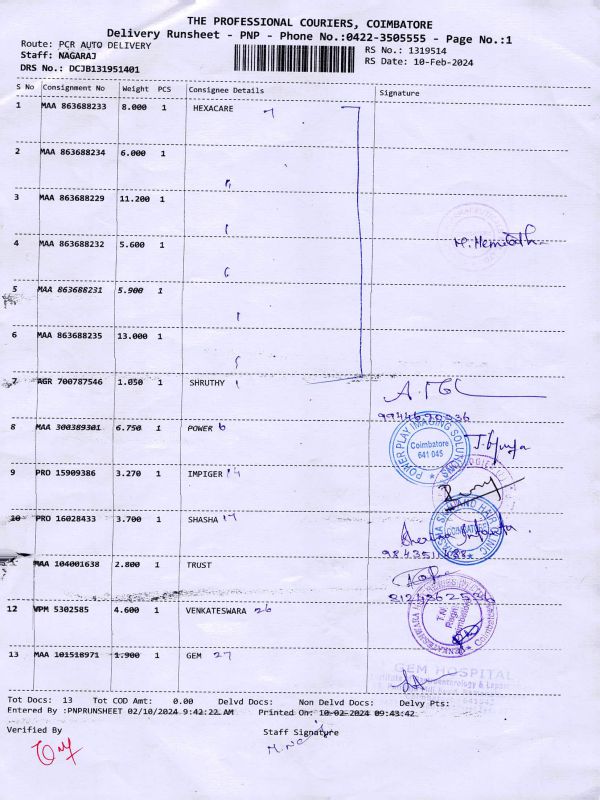 THE PROFESSIONAL COURIERS, COIMBATORE
Delivery Runsheet - PNP - Phone No.:0422-3505555 - Page No.:1
Route: PCR AUTO DELIVERY
RS No.: 1319514
Staff: NAGARAJ
RS Date: 10-Feb-2024
DRS No.: DCJB131951401
S No Consignment No Weight PCS Consignee Details Signature
1 MAA 863688233 8.000 1 HEXACARE
2 MAA 863688234 6.000 1
3 MAA 863688229 11.200 1
4 MAA 863688232 5.600 1
5 MAA 863688231 5.900 1
6 MAA 863688235 13.000 1
7 AGR 700787546 1.050 1 SHRUTHY
8 MAA 300389301 6.750 1 POWER 6
POWER PLAY IMAGING SOLUTIONS
Coimbatore
641 045
9 PRO 15909386 3.270 1 IMPIGER 14
10 PRO 16028433 3.700 1 SHASHA 17
SKIN AND HAIR CLINIC
COIMBATORE
MAA 104001638 2.800 1 TRUST
12 VPM 5302585 4.600 1 VENKATESWARA 26
13 MAA 101518971 1.900 1 GEM 27
GEM HOSPITAL
Tot Docs: 13 Tot COD Amt: 0.00 Delvd Docs: Non Delvd Docs: Delvy Pts:
Entered By :PNPRUNSHEET 02/10/2024 9:42:22 AM Printed On: 10-02-2024 09:43:42
Verified By Staff Signature